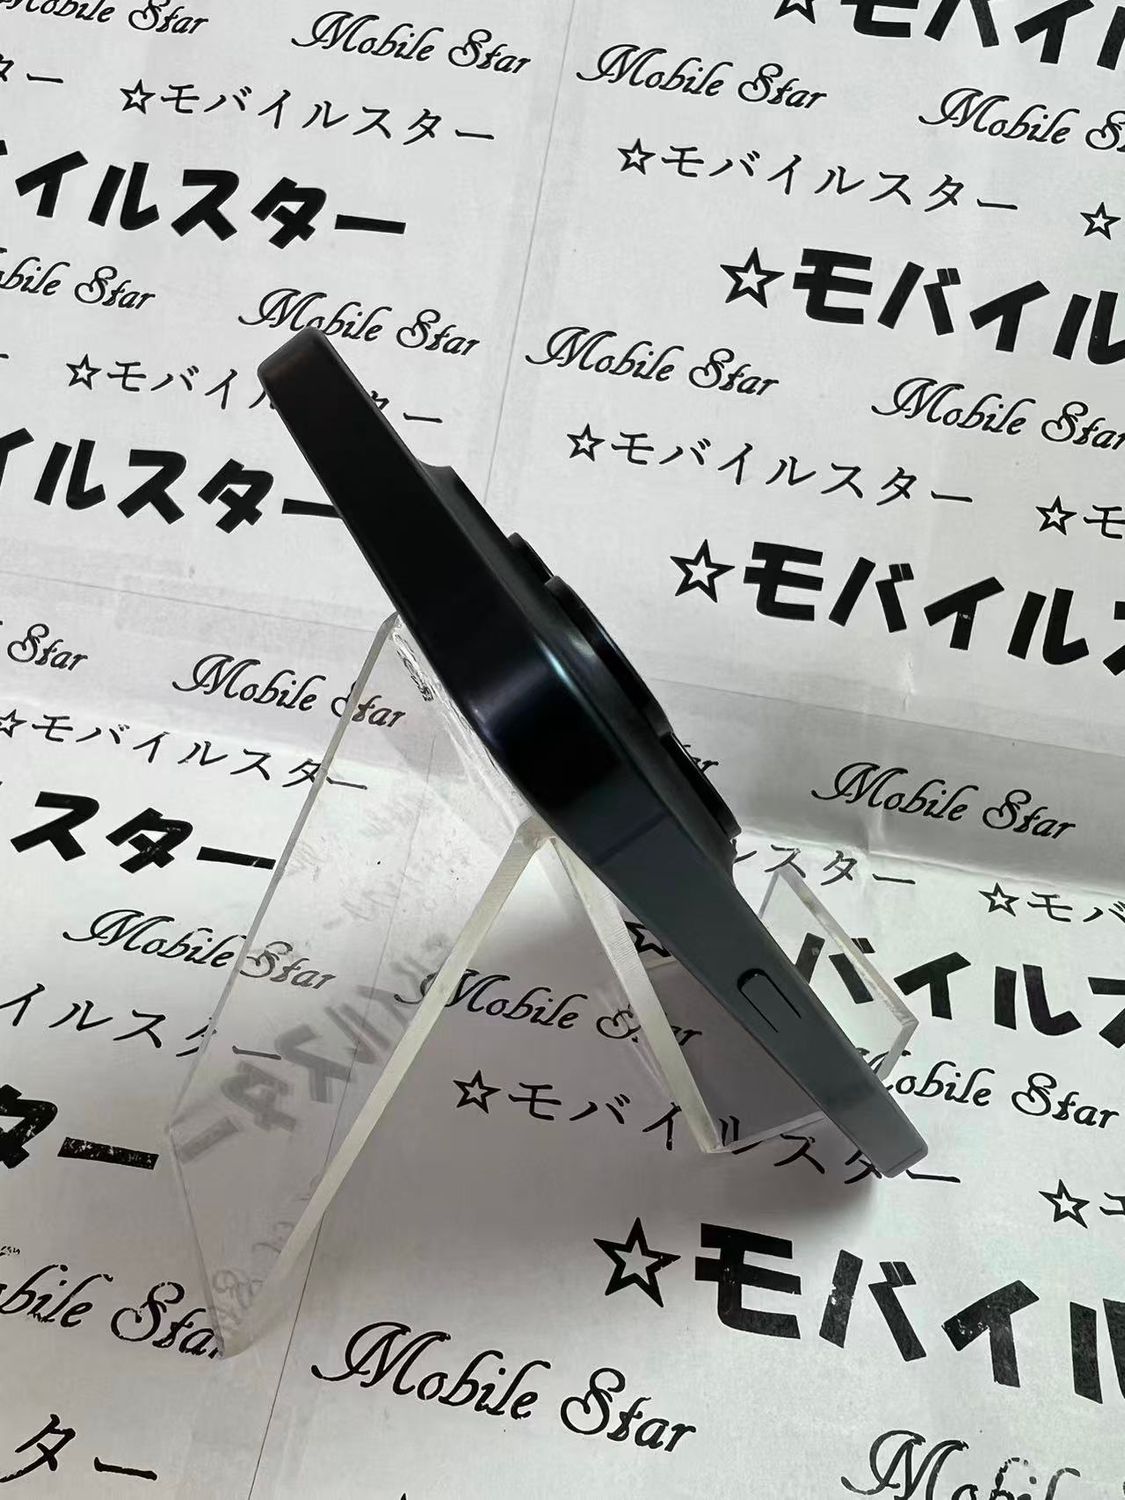 Mobile Star
Mobile Star
Mobile Star
Mobile
☆モバイルスター
☆モバイルスター
イルスター
☆モバイル
Star
Mobile Star
Mobile Star
Mobile Star
☆モバイ
☆モバイルスター
ルスター
☆モバイル
Star
Mobile Star
Mobile Star
☆モバイルスター
スター
スター
☆モバ
Mobile Star
Mobile Star
Mobile Star
イルス
バイル
☆モバイルスター
ター
☆モバイル
Star
Mobile Star
ター